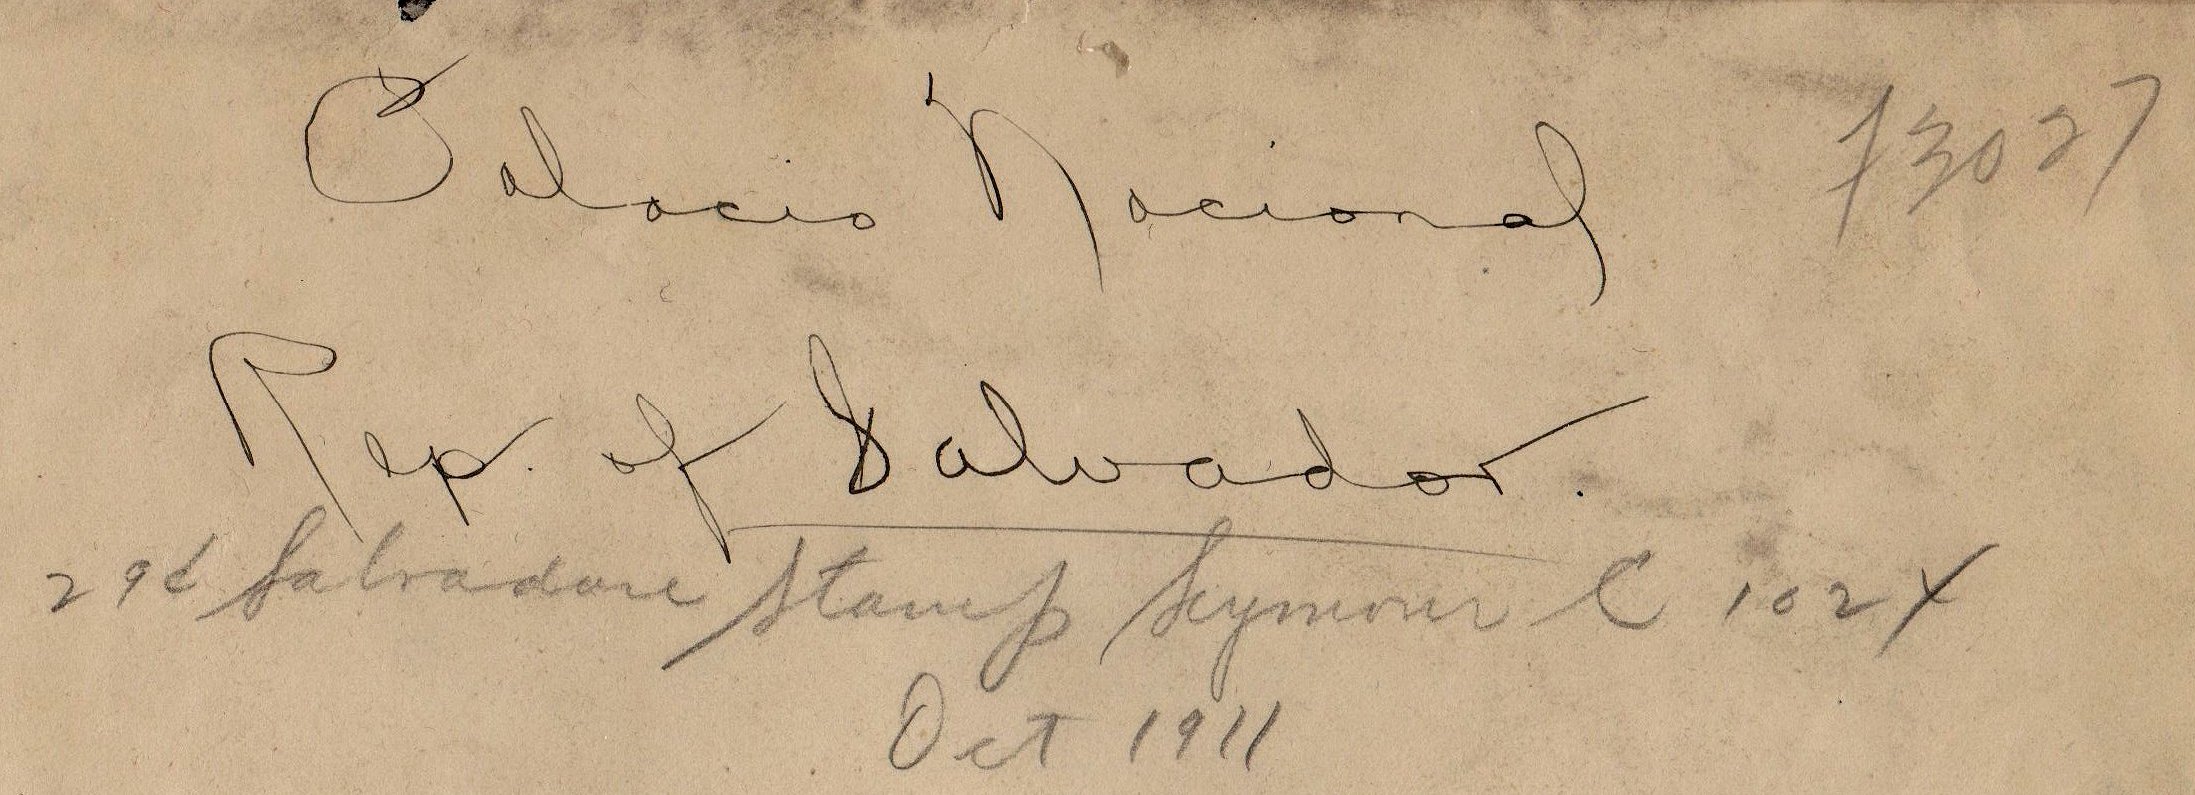 Palacio Nacional
73027
Rep. of Salvador.
29¢ Salvadore Stamp Seymour C 102X
Oct 1911